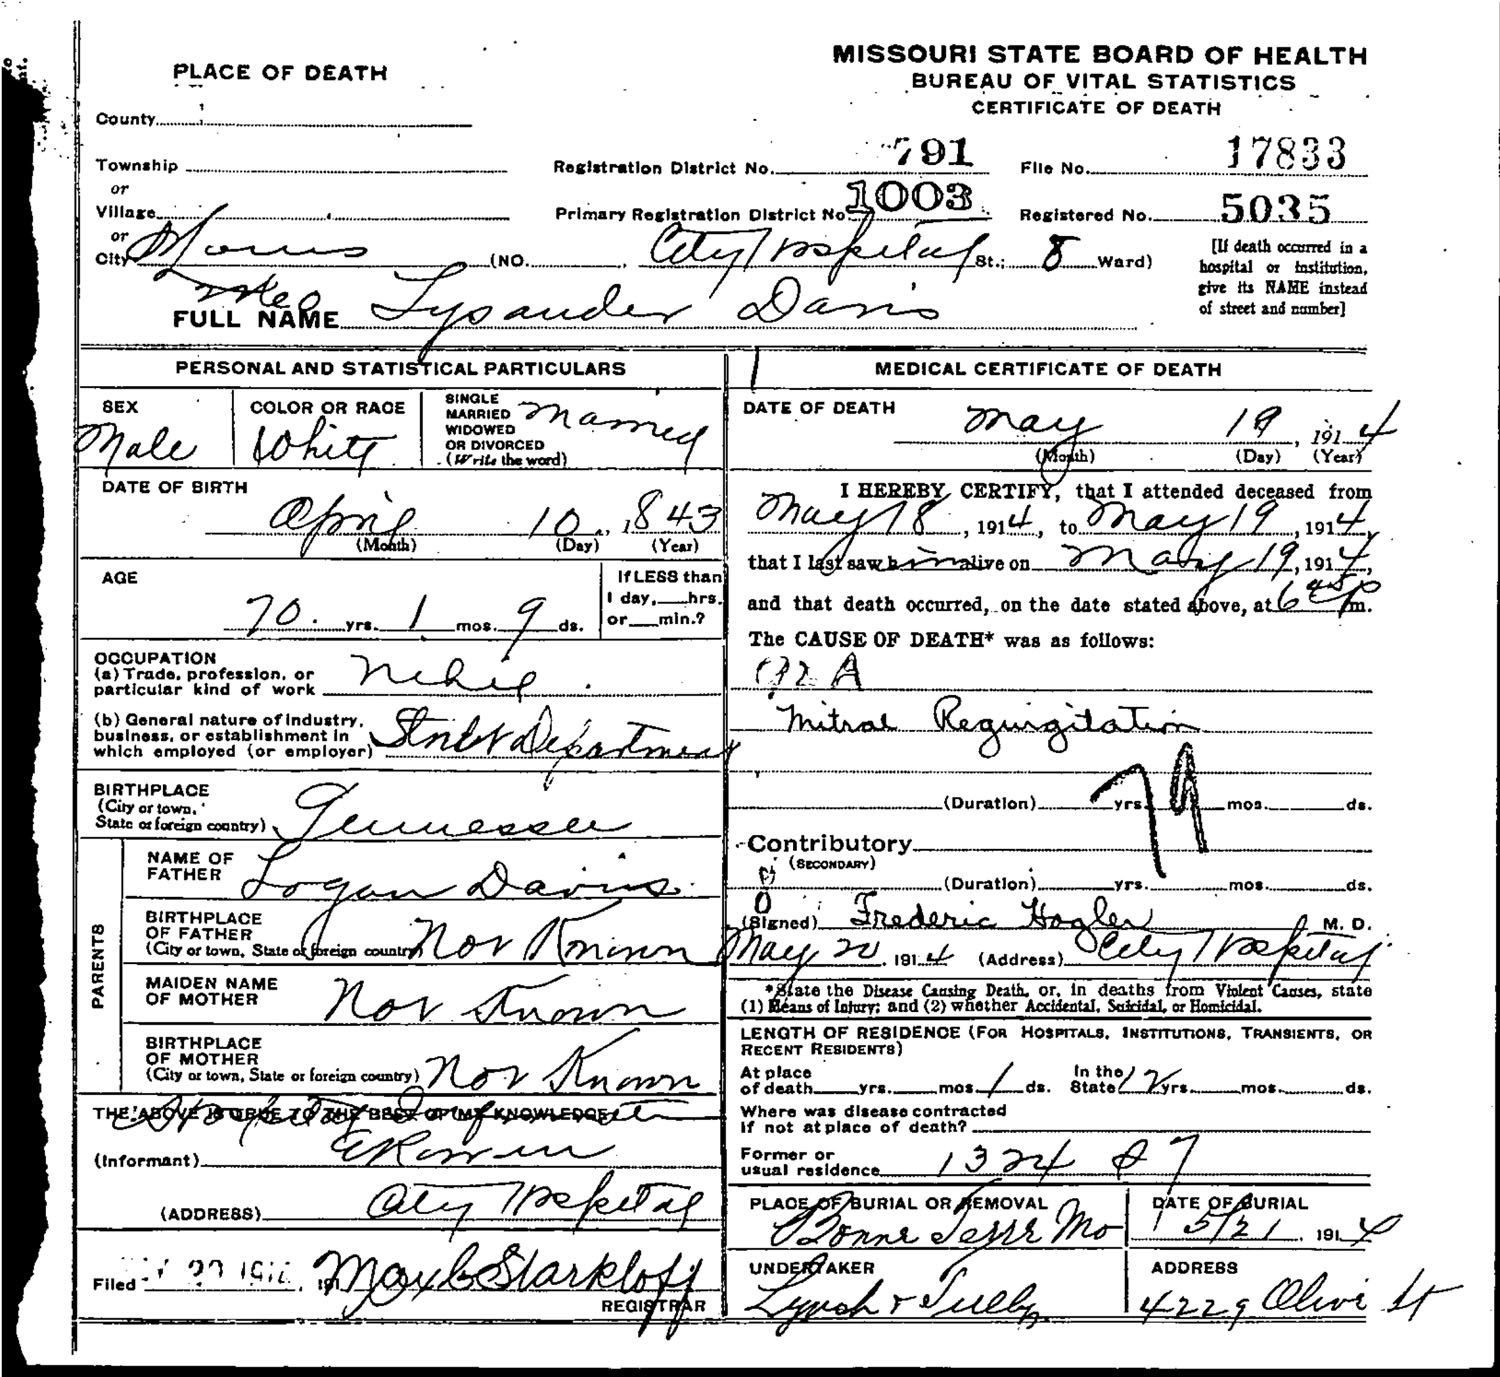 MISSOURI STATE BOARD OF HEALTH
BUREAU OF VITAL STATISTICS
CERTIFICATE OF DEATH
PLACE OF DEATH
County
Township
or
Village
or
City St Louis (NO. City Hospital St.; 8 Ward)
Registration District No. 791
Primary Registration District No. 1003
File No. 17833
Registered No. 5035
[If death occurred in a
hospital or institution,
give its NAME instead
of street and number]
FULL NAME Lysander Davis
PERSONAL AND STATISTICAL PARTICULARS
SEX
Male
COLOR OR RACE
White
SINGLE
MARRIED
WIDOWED
OR DIVORCED
(Write the word)
Married
DATE OF BIRTH
April 10, 1843
(Month) (Day) (Year)
AGE
70 yrs. 1 mos. 9 ds.
If LESS than
1 day, hrs.
or min.?
OCCUPATION
(a) Trade, profession, or
particular kind of work
(b) General nature of industry,
business, or establishment in
which employed (or employer) Street Department
BIRTHPLACE
(City or town,
State or foreign country) Tennessee
PARENTS
NAME OF
FATHER Logan Davis
BIRTHPLACE
OF FATHER
(City or town, State or foreign country) Not Known
MAIDEN NAME
OF MOTHER Not Known
BIRTHPLACE
OF MOTHER
(City or town, State or foreign country) Not Known
THE ABOVE IS TRUE TO THE BEST OF MY KNOWLEDGE
Hospital Information
(Informant)
(ADDRESS) City Hospital
Filed 20 1914 191 Max C Starkloff
REGISTRAR
MEDICAL CERTIFICATE OF DEATH
DATE OF DEATH
May 19, 1914
(Month) (Day) (Year)
I HEREBY CERTIFY, that I attended deceased from
May 18, 1914, to May 19, 1914,
that I last saw him alive on May 19, 1914,
and that death occurred, on the date stated above, at 6 45 P m.
The CAUSE OF DEATH* was as follows:
92 A
Mitral Regurgitation
79
(Duration) yrs. mos. ds.
Contributory
(SECONDARY)
(Duration) yrs. mos. ds.
(Signed) Frederic Hogler M. D.
May 20, 1914 (Address) City Hospital
*State the Disease Causing Death, or, in deaths from Violent Causes, state
(1) Means of Injury; and (2) whether Accidental, Suicidal, or Homicidal.
LENGTH OF RESIDENCE (FOR HOSPITALS, INSTITUTIONS, TRANSIENTS, OR
RECENT RESIDENTS)
At place
of death yrs. mos. 1 ds.
In the
State 12 yrs. mos. ds.
Where was disease contracted
if not at place of death?
Former or
usual residence 1324 S 7
PLACE OF BURIAL OR REMOVAL
Bonne Terre Mo
DATE OF BURIAL
5/21, 1914
UNDERTAKER
Lynch & Tully
ADDRESS
4229 Olive St